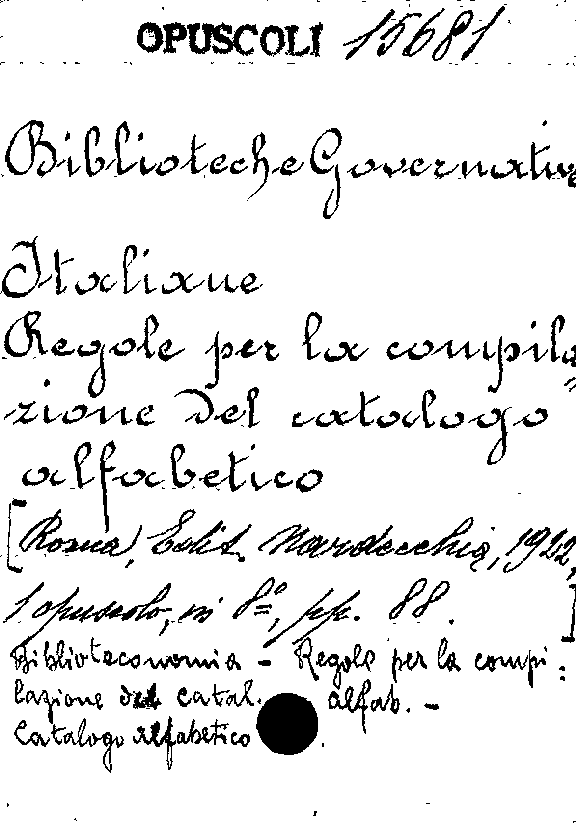 OPUSCOLI 15681
Biblioteche Governative
Italiane
Regole per la compila
zione del catalogo
alfabetico
[Roma, Edit. Nardecchia, 1922,
1 opuscolo, in 8º, pp. 88.]
Biblioteconomia - Regole per la compi:
lazione del catal. alfab. -
Catalogo alfabetico.